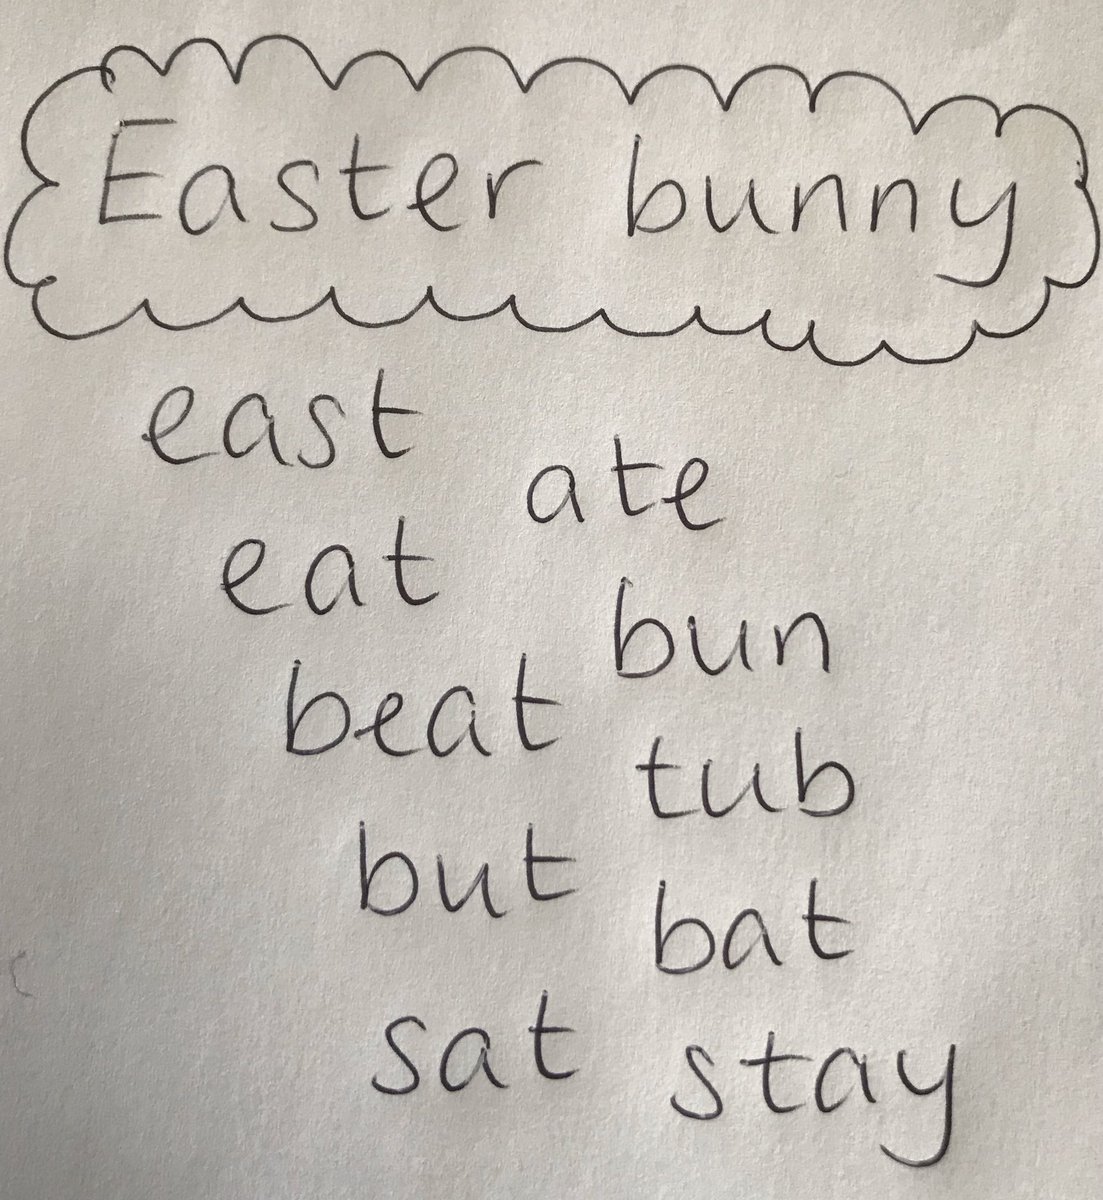 Easter bunny
east
ate
eat
bun
beat
tub
but
bat
sat
stay